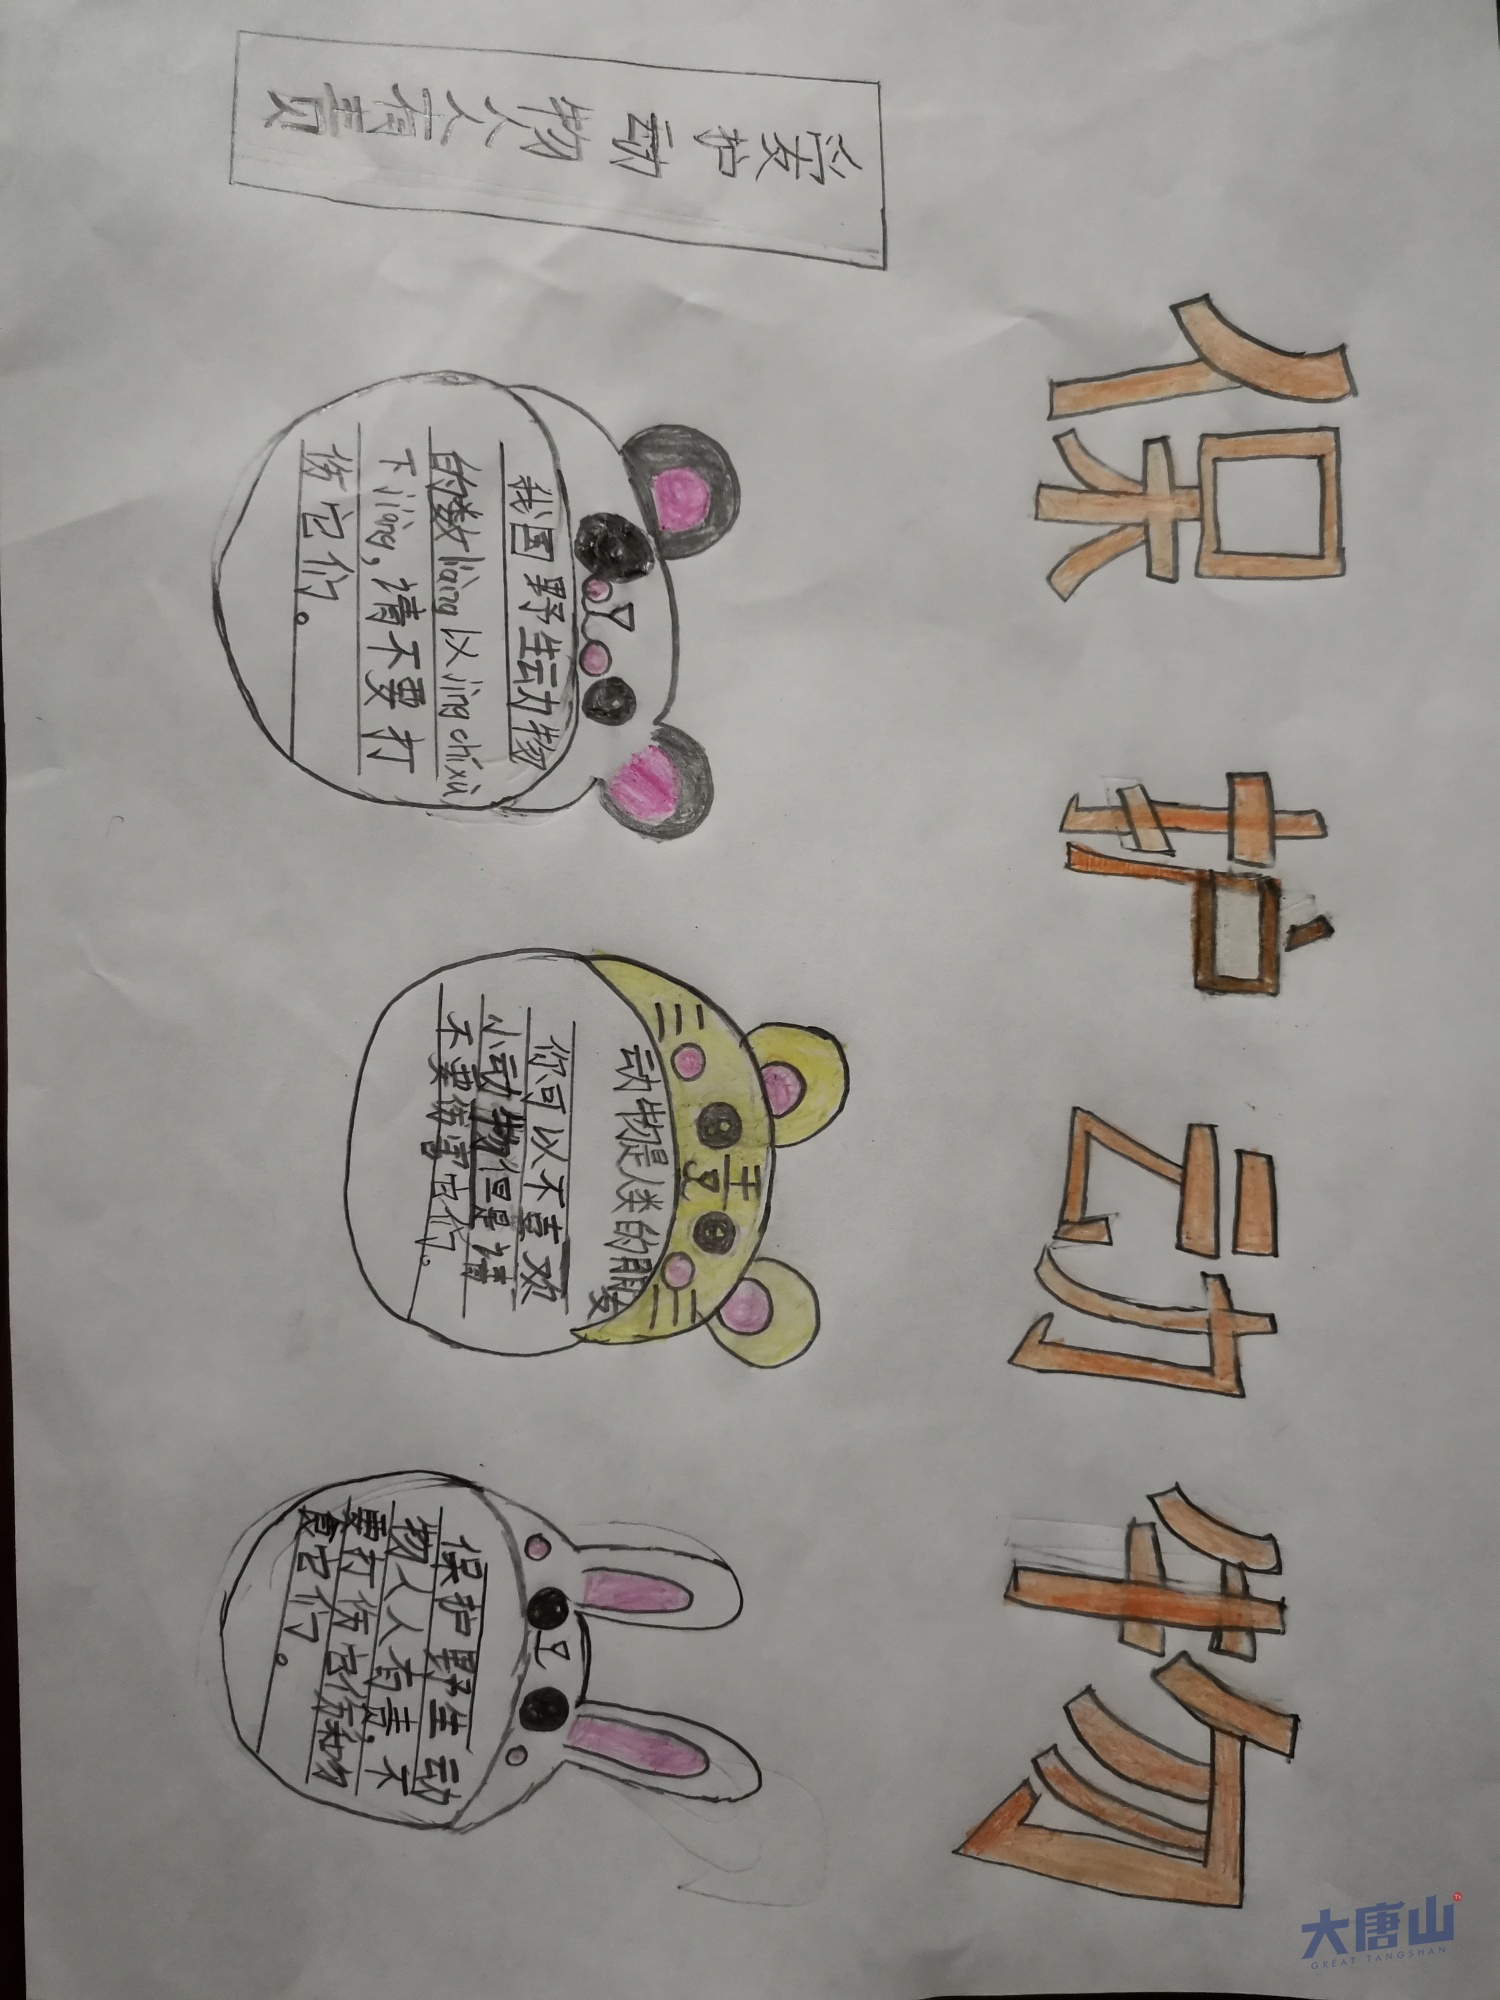 保护动物
爱护动物人人有责
我国野生动物
的数liàng以jīng chíxù
下jiàng,请不要打
伤它们。
动物是人类的朋友
你可以不喜欢
小动物但是请
不要伤害它们。
保护野生动
物人人有责.不
要打伤它们和
食它们。
大唐山
GREAT TANGSHAN